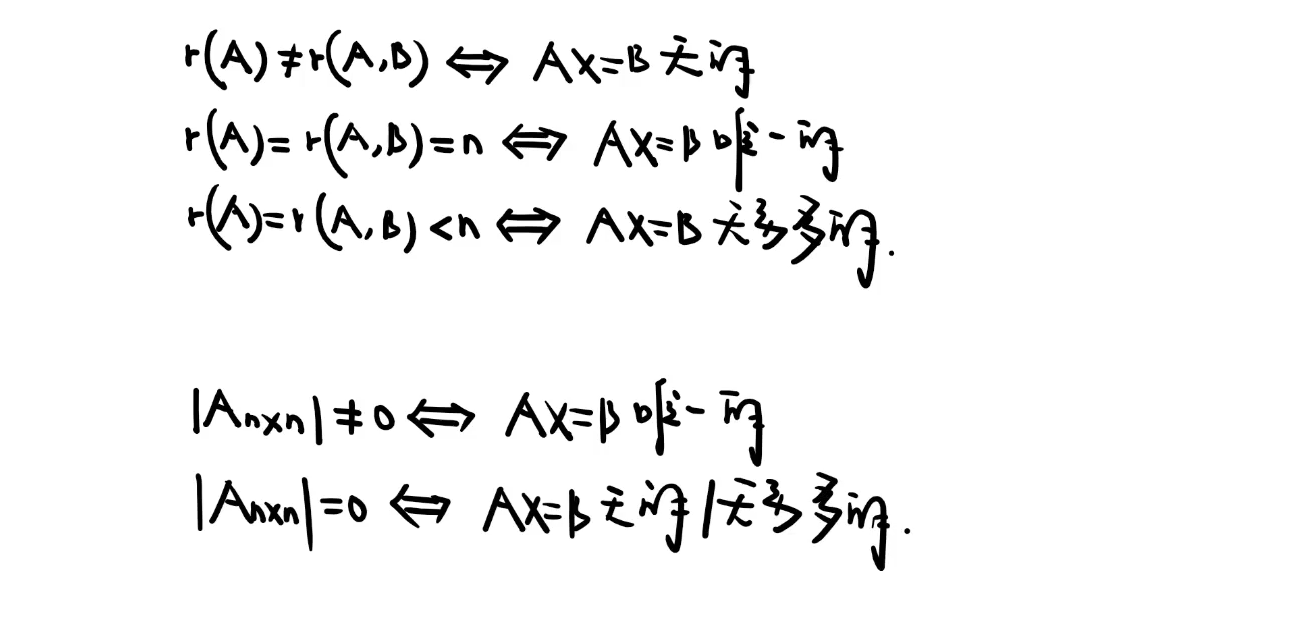 r(A)≠r(A,B) ⇔ AX=B 无解
r(A)=r(A,B)=n ⇔ AX=B 唯一解
r(A)=r(A,B)<n ⇔ AX=B 无穷多解.
|Aₙₓₙ|≠0 ⇔ AX=B 唯一解
|Aₙₓₙ|=0 ⇔ AX=B 无解|无穷多解.